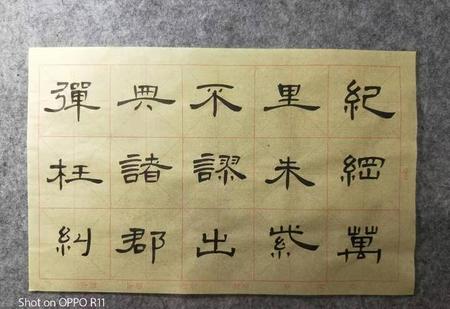 紀綱萬
里朱紫
不謬出
典諸郡
彈枉糾
Shot on OPPO R11